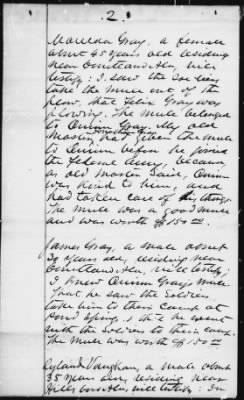 2
Gray, a female
about 45 years old residing
near Courtland Ala, will
testify: I saw the soldiers
take the mule out of the
plow, that Felix Gray was
plowing. The mule belonged
to Quinn Gray. My old
Master had given the mule
to Quinn before he joined
the Federal Army, because
as old Master said, Quinn
was kind to him, and
had taken care of his things.
The mule was a good mule
and was worth $150 00
James Gray, a male about
30 years old, residing near
Courtland Ala, will testify;
I knew Quinn Gray's mule
That he saw the soldiers
take him to their camp at
Pond Spring. That he went
with the soldiers to their camp.
The mule was worth $150 00
Vaughan, a male about
35 years old, residing near
Hillsboro Ala, will testify: In